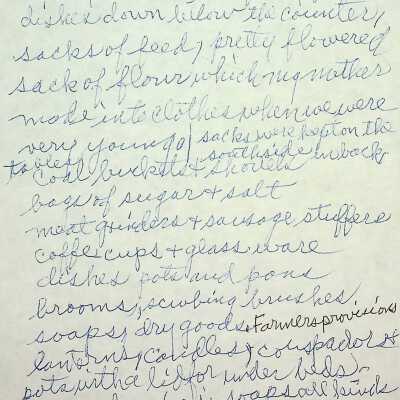 dishes down below the counter,
sacks of feed, pretty flowered
sack of flour which my mother
made into clothes when we were
very young, sacks were kept on the
tables southside in back
coal buckets & shovels
bags of sugar & salt
meat grinders & sausage stuffers
coffe cups & glass ware
dishes pots and pans
brooms, scrubing brushes
soaps, dry goods, Farmers provisions
lanterns, candles, couspadors &
pots with a lid for under beds.
soaps all kinds